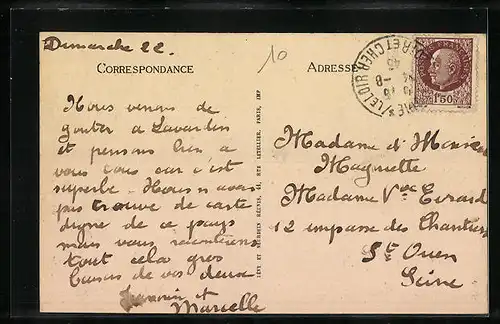 Dimanche 22.
10
CORRESPONDANCE
Nous venons de
gouter a Lavardin
et pensons bien a
vous tous car c'est
superbe. Nous n'avons
pas trouve de carte
digne de ce pays
mais vous
tout cela gros
bises de vos deux
et
Marcelle
LÉVY ET NEURDEIN RÉUNIS, 44, RUE LETELLIER, PARIS, IMP
ADRESSE
1F50
Madame et Monsieur
Maguette
Madame Vve Evrard
12 impasse des Chantiers
St Ouen
Seine